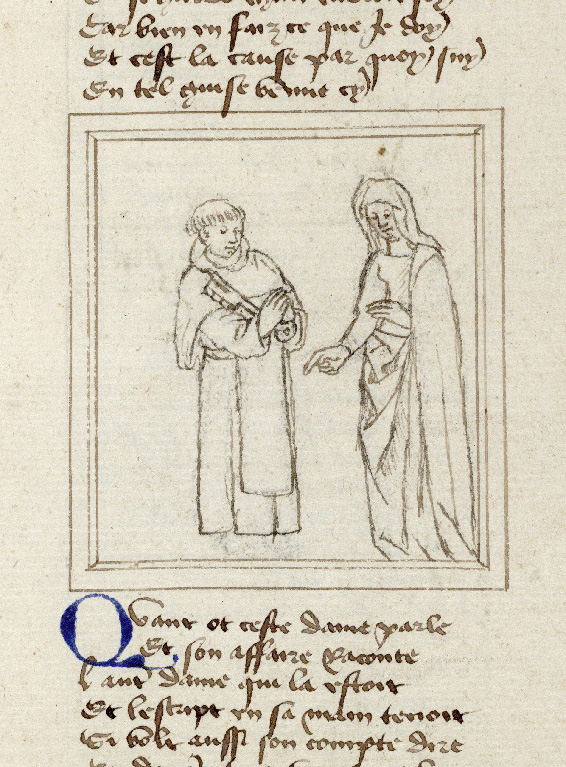 Car bien en faiz ce que je doy
Et cest la cause par quoy suy
En tel guise venue cy
Quant ot ceste dame parle
Et son affaire raconte
Lautre dame qui la estoit
Et lescript en sa main tenoit
Si volt aussi son compte dire